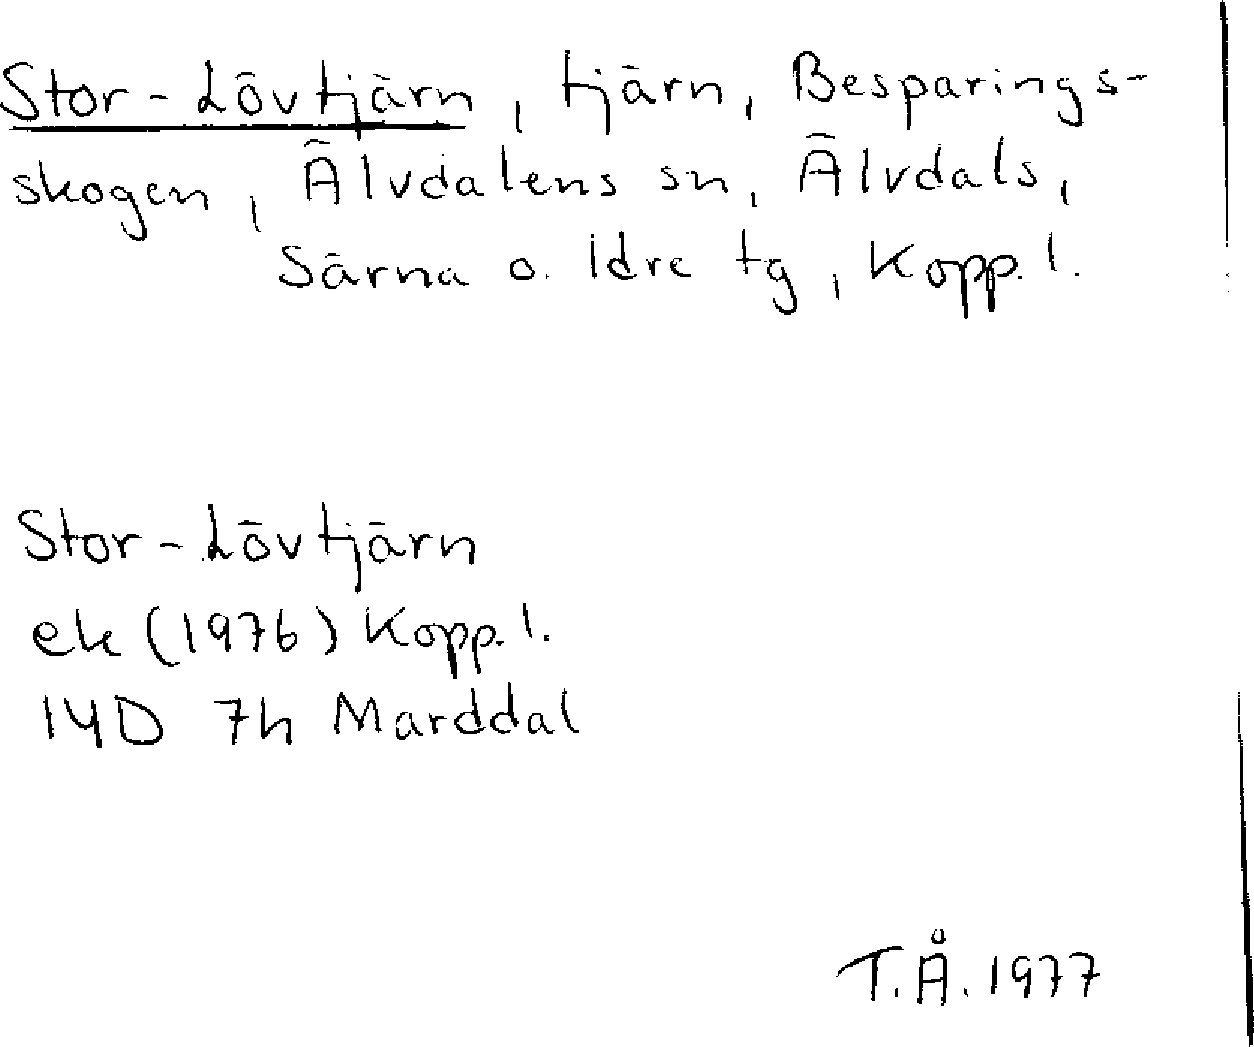 Stor-Lövtjärn, tjärn, Besparings-
skogen, Älvdalens sn, Älvdals,
Särna o. Idre tg, Kopp. l.
Stor-Lövtjärn
ek (1976) Kopp. l.
14D 7h Marddal
T.Å. 1977